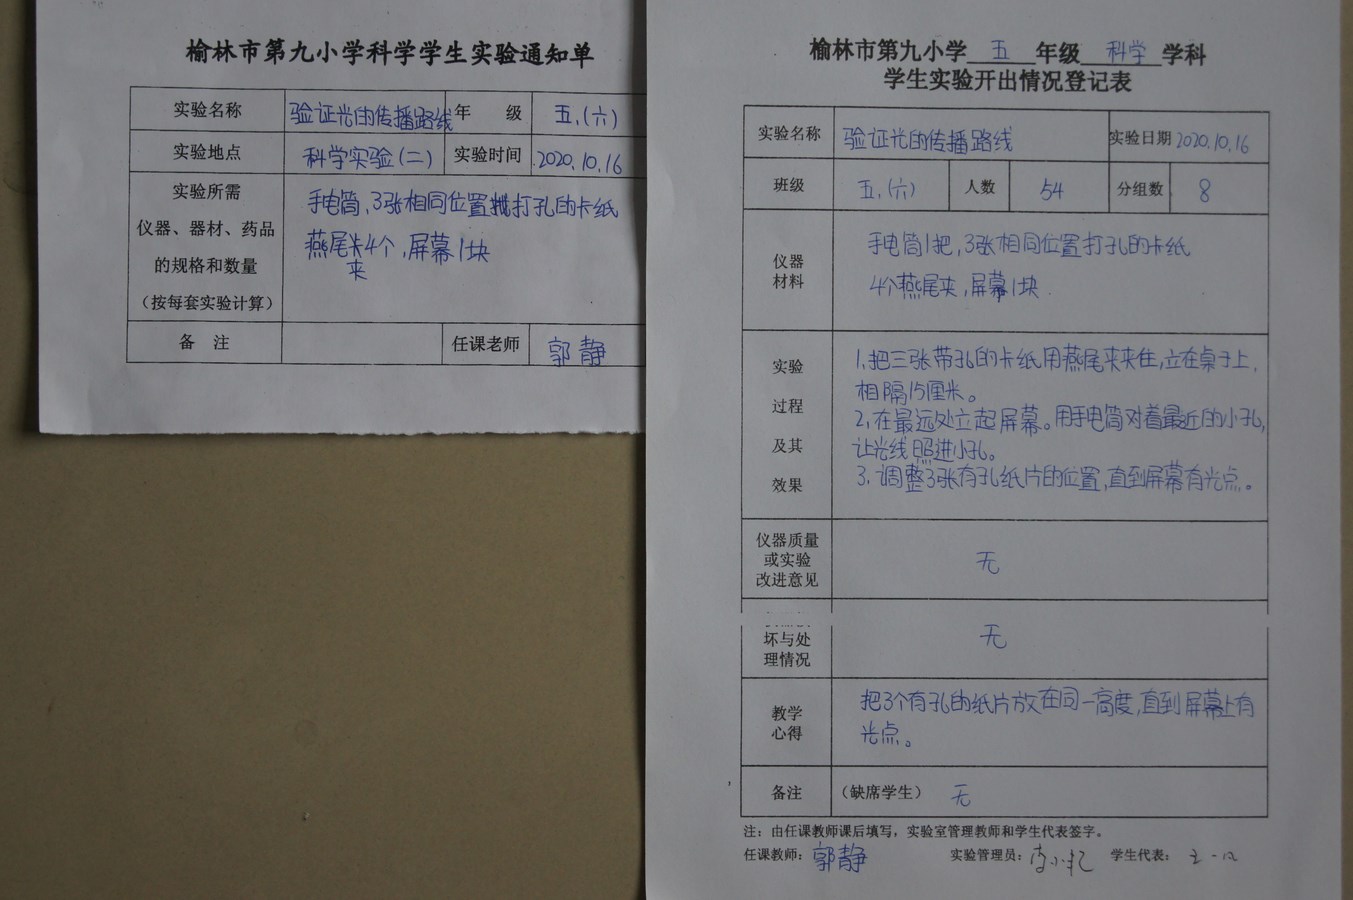 榆林市第九小学科学学生实验通知单
实验名称 验证光的传播路线 年 级 五.(六)
实验地点 科学实验(二) 实验时间 2020.10.16
实验所需
仪器、器材、药品
的规格和数量
（按每套实验计算）
手电筒,3张相同位置打孔的卡纸
燕尾夹4个,屏幕1块
备 注 任课老师 郭静
榆林市第九小学 五 年级 科学 学科
学生实验开出情况登记表
实验名称 验证光的传播路线 实验日期 2020.10.16
班级 五.(六) 人数 54 分组数 8
仪器
材料
手电筒1把,3张相同位置打孔的卡纸
4个燕尾夹,屏幕1块.
实验
过程
及其
效果
1.把三张带孔的卡纸用燕尾夹夹住,立在桌子上,
相隔15厘米。
2,在最远处立起屏幕。用手电筒对着最近的小孔,
让光线照进小孔。
3.调整3张有孔纸片的位置,直到屏幕有光点。
仪器质量
或实验
改进意见
无
坏与处
理情况
无
教学
心得
把3个有孔的纸片放在同一高度,直到屏幕上有
光点。
备注 （缺席学生） 无
注：由任课教师课后填写，实验室管理教师和学生代表签字。
任课教师：郭静 实验管理员： 学生代表：